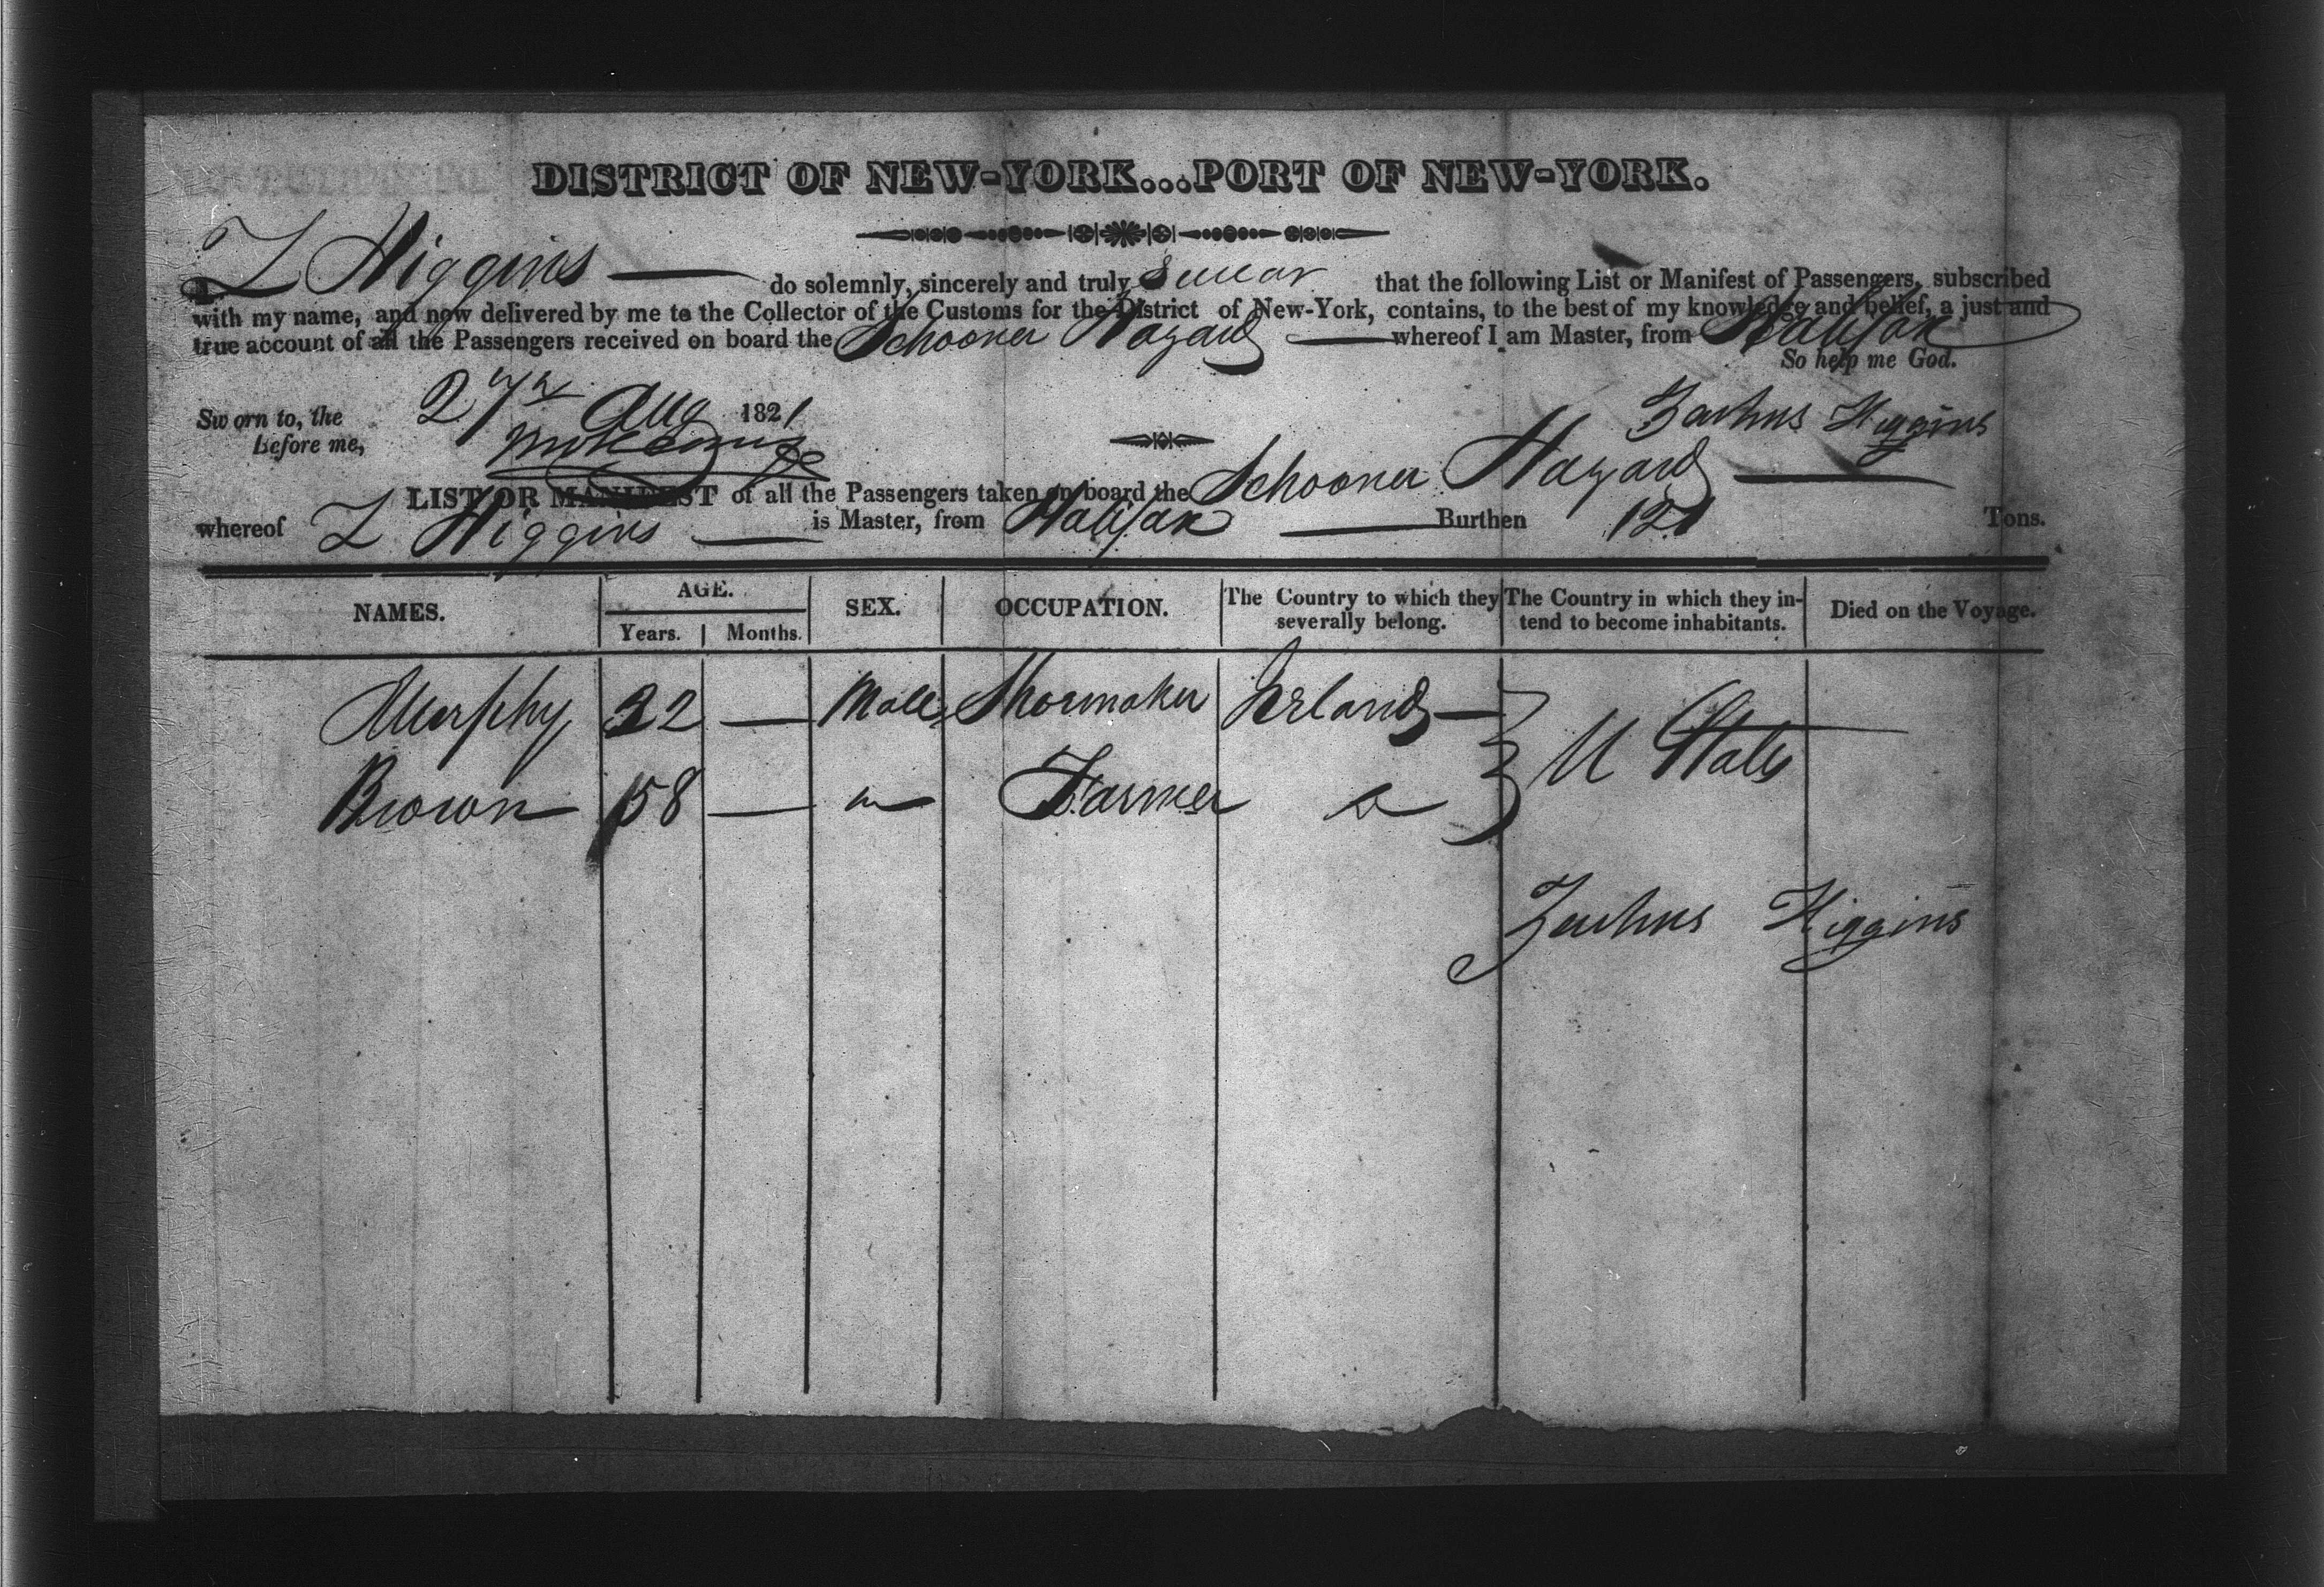 DISTRICT OF NEW-YORK...PORT OF NEW-YORK.
I, Z Higgins — do solemnly, sincerely and truly swear that the following List or Manifest of Passengers, subscribed
with my name, and now delivered by me to the Collector of the Customs for the District of New-York, contains, to the best of my knowledge and belief, a just and
true account of all the Passengers received on board the Schooner Hazard — whereof I am Master, from Halifax
So help me God.
Sworn to, the 27th Aug 1821
before me,
Higgins
LIST OR MANIFEST of all the Passengers taken on board the Schooner Hazard —
whereof Z Higgins — is Master, from Halifax — Burthen 121 Tons.
NAMES. AGE. Years. Months. SEX. OCCUPATION. The Country to which they severally belong. The Country in which they intend to become inhabitants. Died on the Voyage.
Murphy 32 — Male Shoemaker Irland —
U States
Brown 58 — Farmer
Higgins